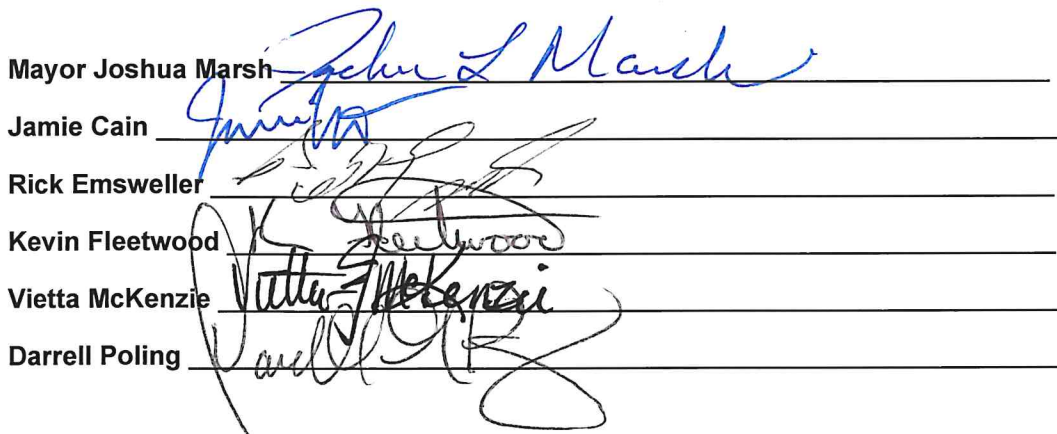 Mayor Joshua Marsh Joshua L Marsh
Jamie Cain
Rick Emsweller
Kevin Fleetwood K Fleetwood
Vietta McKenzie Vietta McKenzie
Darrell Poling Darrell